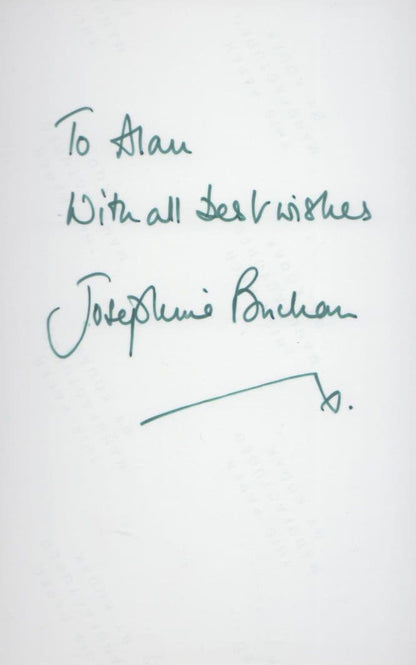 To Alan
With all best wishes
Josephine Buchan
x.